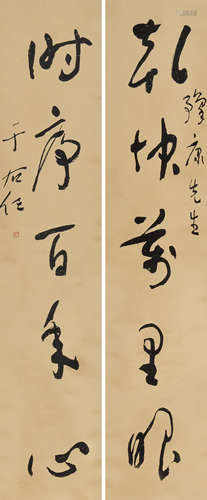 乾坤萬里眼
豫康先生
时序百年心
于右任